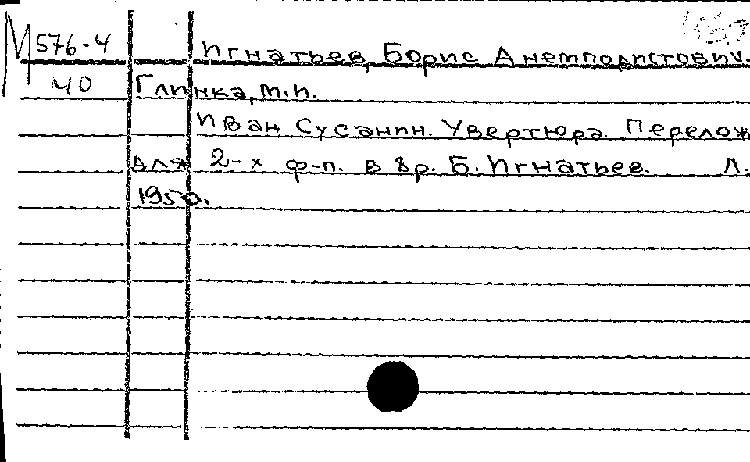 М 576-4 Игнатьев, Борис Анемподистович.
40 Глинка, М.И.
Иван Сусанин. Увертюра. Перелож
для 2-х ф-п. в 8р. Б. Игнатьев. Л.
1950.